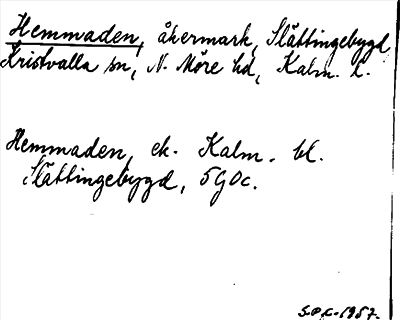 Hemmaden, åkermark, Slättingebygd
Kristvalla sn, N. Möre hd, Kalm. l.
Hemmaden, ek. Kalm. bl.
Slättingebygd, 5GDc.
S.P.C. 1957.